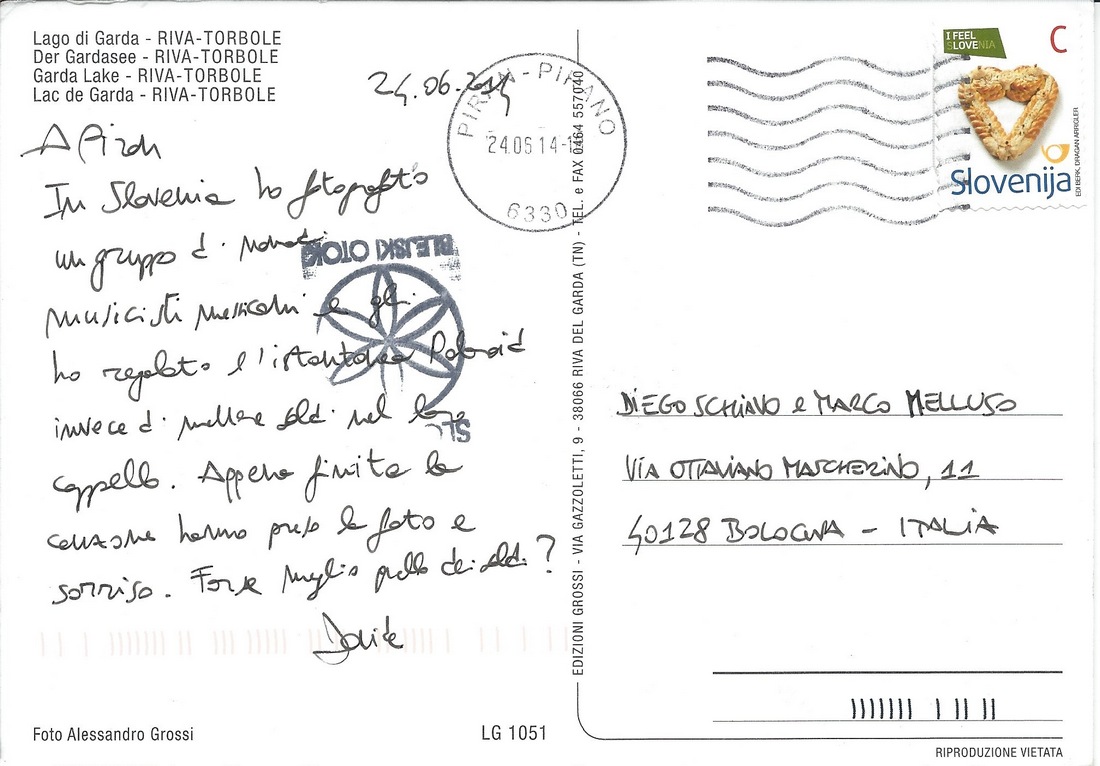 Lago di Garda - RIVA-TORBOLE
Der Gardasee - RIVA-TORBOLE
Garda Lake - RIVA-TORBOLE
Lac de Garda - RIVA-TORBOLE
24.06.2014
A Piran
In Slovenia ho fotografato
un gruppo di nomadi
musicisti messicani e gli
ho regalato l'istantanea Polaroid
invece di mettere soldi nel loro
cappello. Appena finita la
canzone hanno preso la foto e
sorriso. Forse meglio quella dei soldi?
Davide
BLEJSKI OTOK
Foto Alessandro Grossi
LG 1051
EDIZIONI GROSSI - VIA GAZZOLETTI, 9 - 38066 RIVA DEL GARDA (TN) - TEL. e FAX 0464 557040
PIRAN - PIRANO
24.06.14-1
6330
I FEEL
SLOVENIA
C
Slovenija
EDI BERK, DRAGAN ARRIGLER
DIEGO SCHIAVO e MARCO MELLUSO
VIA OTTAVIANO MASCHERINO, 11
40128 BOLOGNA - ITALIA
RIPRODUZIONE VIETATA